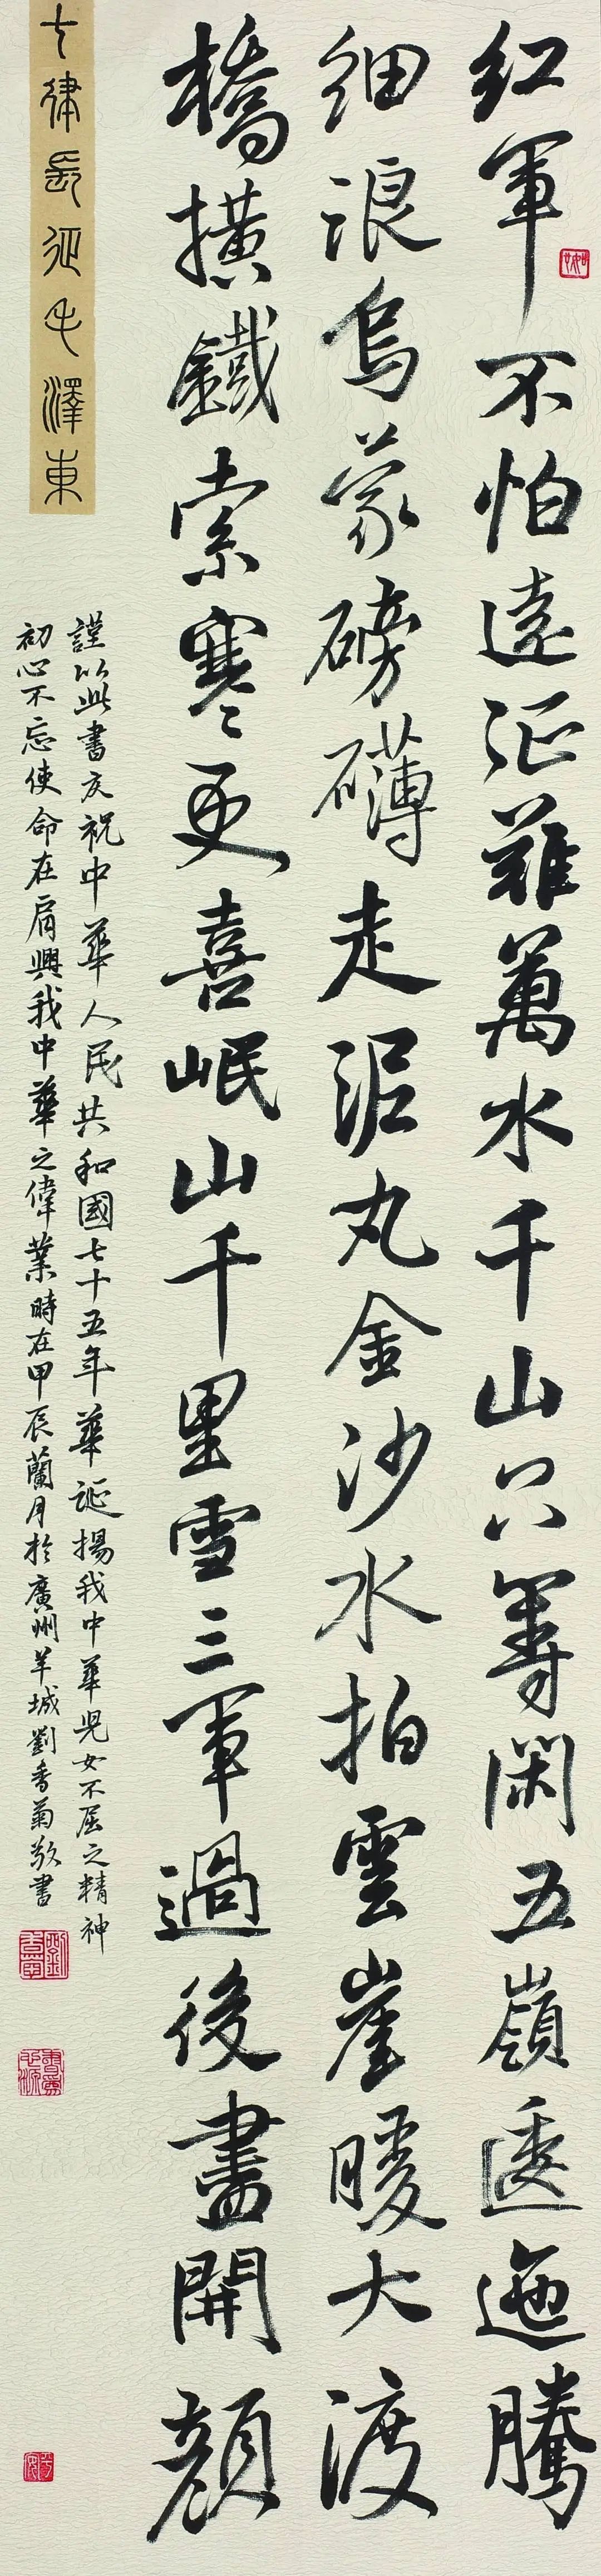 紅軍不怕遠征難萬水千山只等閑五嶺逶迤騰
細浪烏蒙磅礴走泥丸金沙水拍雲崖暖大渡
橋横鐵索寒更喜岷山千里雪三軍過後盡開顔
七律長征毛澤東
謹以此書庆祝中華人民共和國七十五年華誕揚我中華児女不屈之精神
初心不忘使命在肩興我中華之偉業時在甲辰蘭月於廣州羊城劉香菊敬書